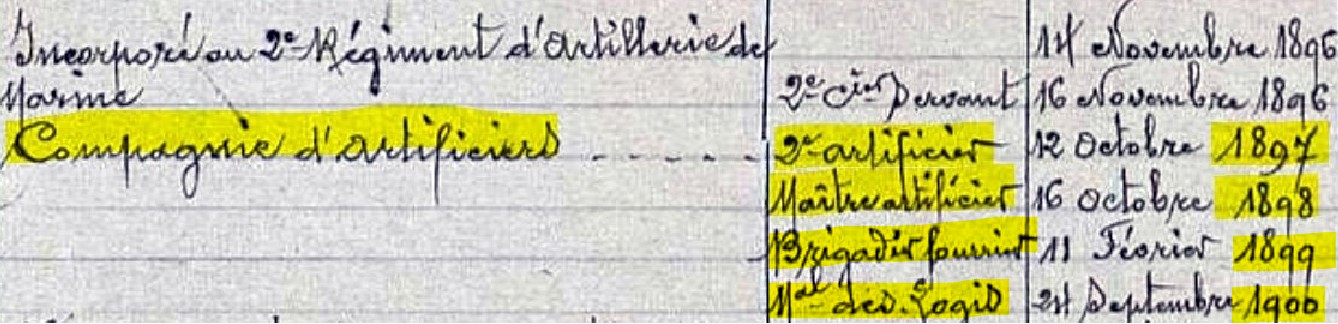 Incorporé au 2e Régiment d'Artillerie de 14 Novembre 1896
Marine 2e Cier Servant 16 Novembre 1896
Compagnie d'Artificiers ..... 2e artificier 12 Octobre 1897
Maître artificier 16 Octobre 1898
Brigadier fourrier 11 Février 1899
Mal des Logis 24 Septembre 1900